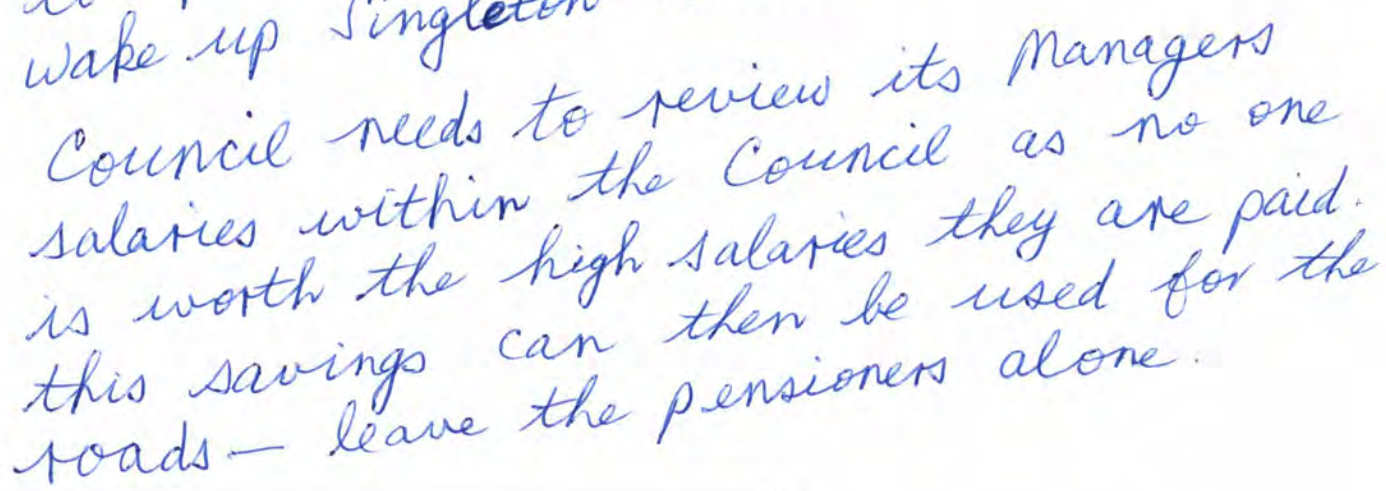 wake up Singleton
Council needs to review its Managers
salaries within the Council as no one
is worth the high salaries they are paid.
this savings can then be used for the
roads — leave the pensioners alone.